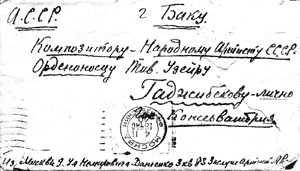 А.С.С.Р. г Баку.
Композитору-Народному Артисту СССР.
Орденоносцу Тов. Узейру
Гаджибекову-лично
Консерватория
МОСКВА
Из Москвы Ул Немировича-Данченко 3 кв 83 Заслуж Артист